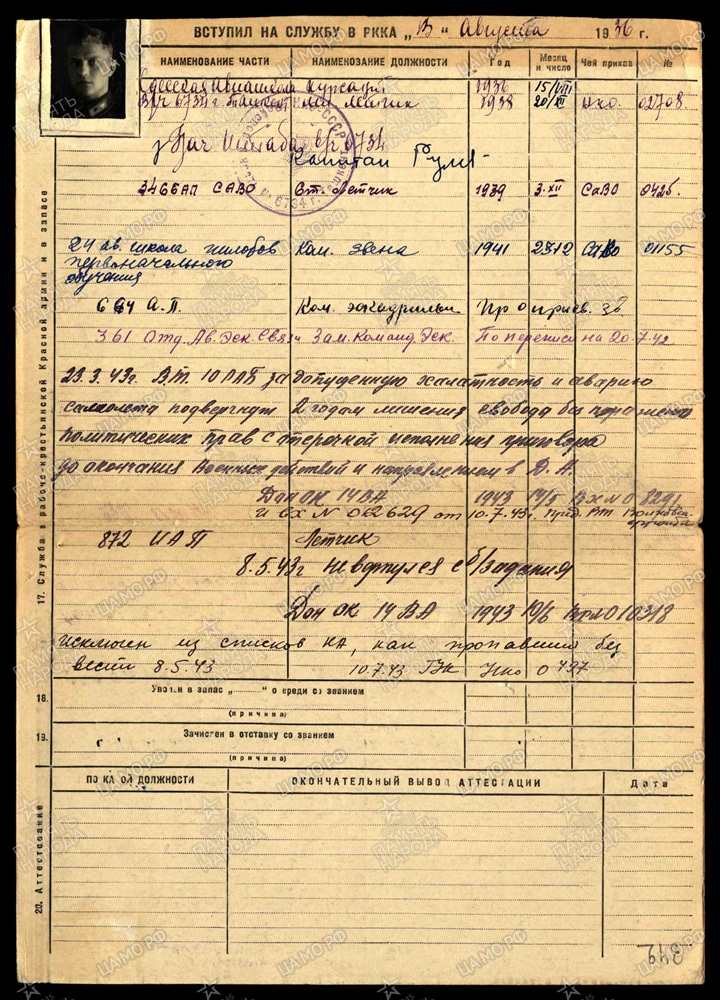 ВСТУПИЛ НА СЛУЖБУ В РККА „ 13 " Августа 1936 г.
НАИМЕНОВАНИЕ ЧАСТИ НАИМЕНОВАНИЕ ДОЛЖНОСТИ Год Месяц и число Чей приказ №
Одесская Авиашкола курсант 1936 15/VIII
В/ч 6734 г. Ташкент мл. летчик 1938 20/XI НКО. 02708.
Нач Штаба в/ч 6734
Капитан
34 ББАП САВО Ст. Летчик 1939 3.XII САВО 0425.
24 ав. школа пилотов Ком. звена 1941 27.12 САВО 01155
первоначального
обучения
664 А.П. Ком. эскадрильи
361 Отд. Ав. Эск. Связи Зам. Команд. Эск. По переписи на 20.7.42
23.3.43г. В.Т. за допущенную халатность и аварию
самолета подвергнут 2 годам лишения свободы без поражения
политических прав с отсрочкой исполнения приговора
до окончания военных действий и направлением в Д.А.
Дон ОК 14 ВА 1943 14/5 Вх № 08291
и вх № 012629 от 10.7.43г. ВТ Волховск.
872 ИАП Летчик
8.5.43г не вернулся с б/задания
Дон ОК 14 ВА 1943 10/6 Вх № 010318
исключен из списков КА, как пропавший без
вести 8.5.43 10.7.43 ГУК НКО 0497
17. Служба в рабоче-крестьянской Красной армии и в запасе
18. Уволен в запас „ " очереди со званием
(причина)
19. Зачислен в отставку со званием
(причина)
20. Аттестование
ПО КАКОЙ ДОЛЖНОСТИ ОКОНЧАТЕЛЬНЫЙ ВЫВОД АТТЕСТАЦИИ Дата
349
ПАМЯТЬ НАРОДА
ЦАМО.РФ